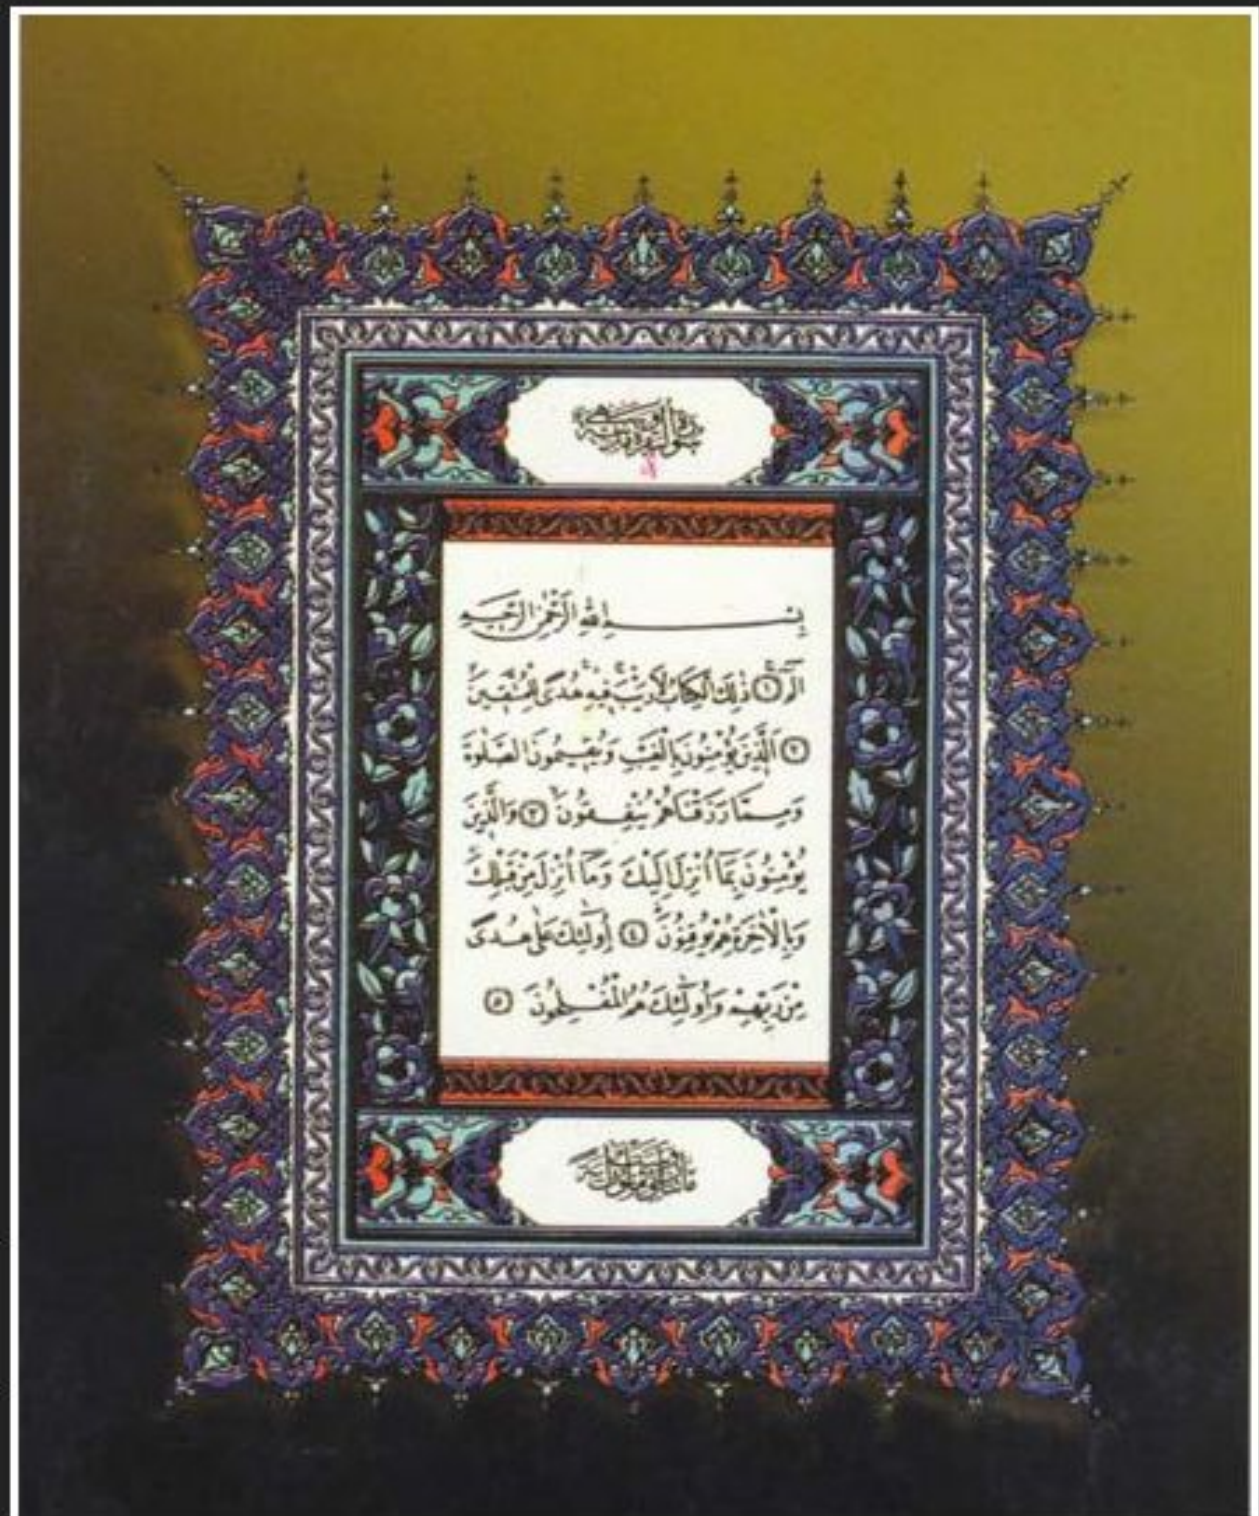 سورة البقرة وهى
بِسْمِ اللهِ الرَّحْمٰنِ الرَّحِيمِ
الٓمٓ ﴿١﴾ ذٰلِكَ الْكِتَابُ لَا رَيْبَ فِيهِ هُدًى لِلْمُتَّقِينَ
﴿٢﴾ اَلَّذِينَ يُؤْمِنُونَ بِالْغَيْبِ وَيُقِيمُونَ الصَّلٰوةَ
وَمِمَّا رَزَقْنَاهُمْ يُنْفِقُونَ ﴿٣﴾ وَالَّذِينَ
يُؤْمِنُونَ بِمَٓا اُنْزِلَ اِلَيْكَ وَمَٓا اُنْزِلَ مِنْ قَبْلِكَ
وَبِالْاٰخِرَةِ هُمْ يُوقِنُونَ ﴿٤﴾ اُولٰٓئِكَ عَلٰى هُدًى
مِنْ رَبِّهِمْ وَاُولٰٓئِكَ هُمُ الْمُفْلِحُونَ ﴿٥﴾